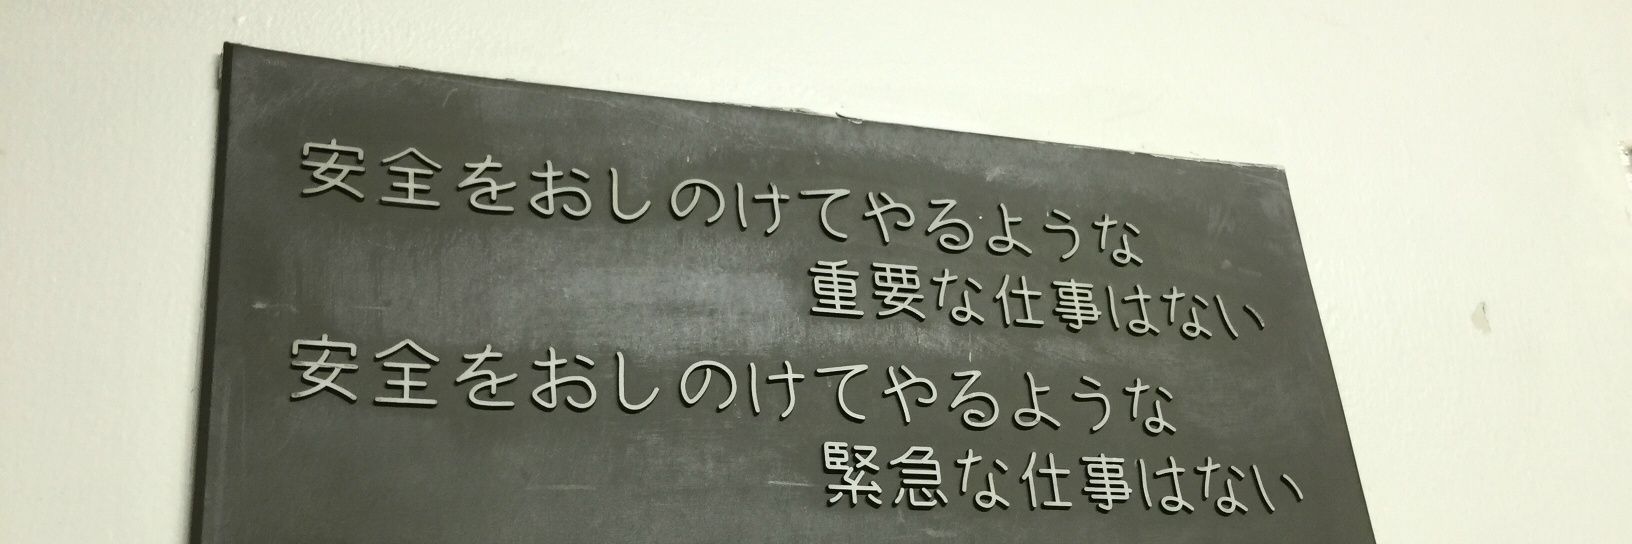 安全をおしのけてやるような
重要な仕事はない
安全をおしのけてやるような
緊急な仕事はない